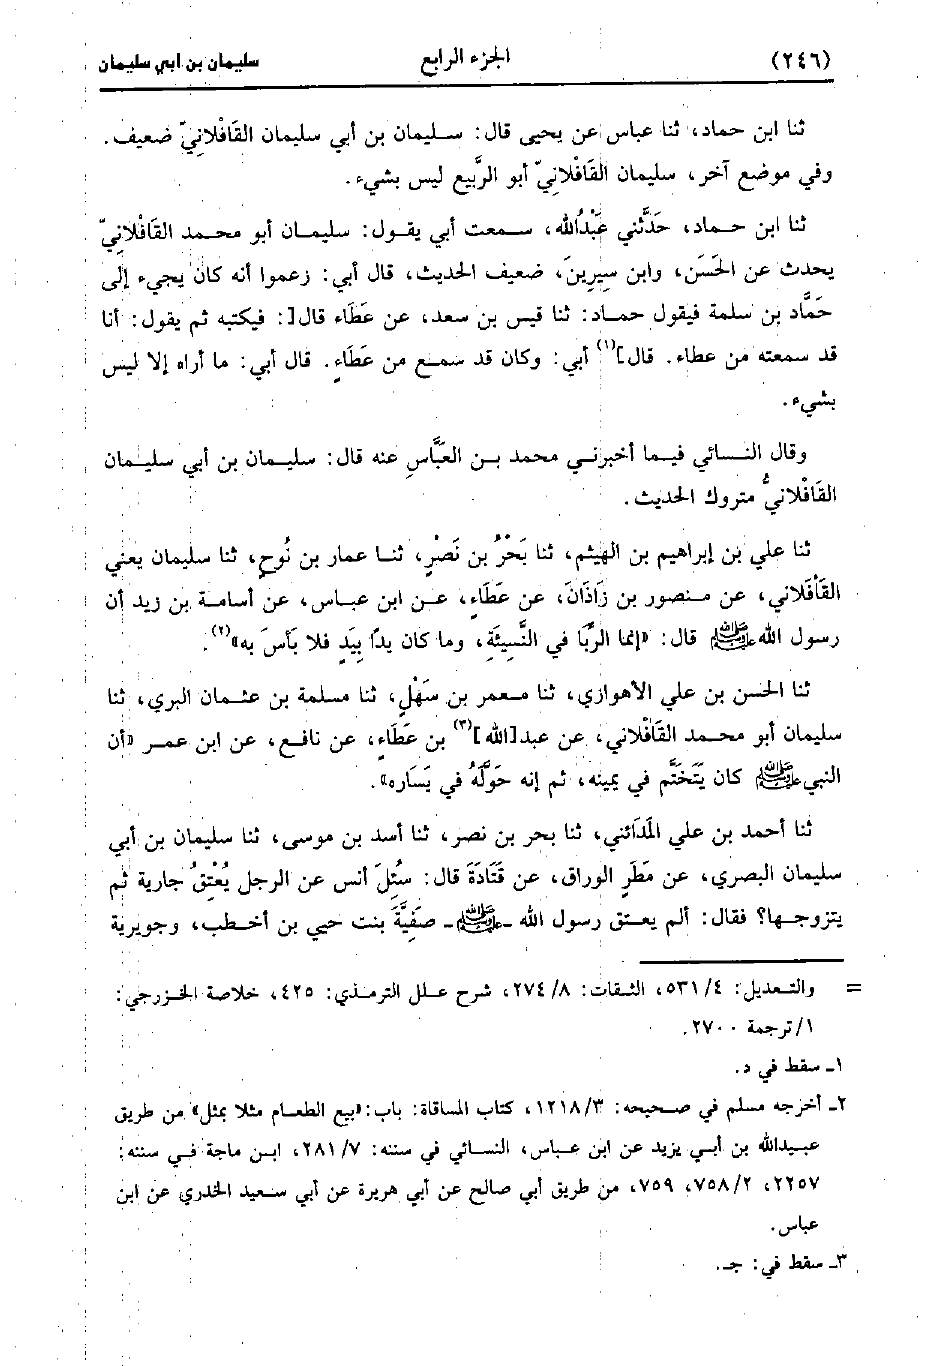 (٢٤٦) الجزء الرابع سليمان بن ابي سليمان
ثنا ابن حماد، ثنا عباس عن يحيى قال: سليمان بن أبي سليمان القَافْلانِيّ ضعيف.
وفي موضع آخر، سليمان القَافْلانِيّ أبو الرَّبيع ليس بشيء.
ثنا ابن حماد، حَدَّثني عَبْدُالله، سمعت أبي يقول: سليمان أبو محمد القَافْلانِيّ
يحدث عن الحَسَن، وابن سِيرِينَ، ضعيف الحديث، قال أبي: زعموا أنه كان يجيء إلى
حَمَّاد بن سلمة فيقول حماد: ثنا قيس بن سعد، عن عَطَاء قال[: فيكتبه ثم يقول: أنا
قد سمعته من عطاء. قال](١) أبي: وكان قد سمع من عَطَاءٍ. قال أبي: ما أراه إلا ليس
بشيء.
وقال النسائي فيما أخبرني محمد بن العَبَّاسِ عنه قال: سليمان بن أبي سليمان
القَافْلانيُّ متروك الحديث.
ثنا علي بن إبراهيم بن الهيثم، ثنا بَحْرُ بن نَصْرٍ، ثنا عمار بن نُوحٍ، ثنا سليمان يعني
القَافْلاني، عن منصور بن زَاذَانَ، عن عَطَاءٍ، عن ابن عباس، عن أسامة بن زيد أن
رسول الله ﷺ قال: «إنما الرِّبَا في النَّسِيئَةِ، وما كان يدًا بِيَدٍ فلا بَأسَ به»(٢).
ثنا الحسن بن علي الأهوازي، ثنا معمر بن سَهْلٍ، ثنا مسلمة بن عثمان البري، ثنا
سليمان أبو محمد القَافْلاني، عن عبد[الله](٣) بن عَطَاءٍ، عن نافع، عن ابن عمر «أن
النبي ﷺ كان يَتَخَتَّم في يمينه، ثم إنه حَوَّلَهُ في يَسَاره».
ثنا أحمد بن علي المَدَائني، ثنا بحر بن نصر، ثنا أسد بن موسى، ثنا سليمان بن أبي
سليمان البصري، عن مَطَرٍ الوراق، عن قَتَادَةَ قال: سُئِلَ أنس عن الرجل يُعْتِقُ جارية ثم
يتزوجها؟ فقال: ألم يعتق رسول الله ـ ﷺ ـ صَفِيَّةَ بنت حيي بن أخطب، وجويرية
= والتعديل: ٥٣١/٤، الثقات: ٢٧٤/٨، شرح علل الترمذي: ٤٢٥، خلاصة الخزرجي:
١/ترجمة ٢٧٠٠.
١ـ سقط في د.
٢ـ أخرجه مسلم في صحيحه: ١٢١٨/٣، كتاب المساقاة: باب: «بيع الطعام مثلا بمثل» من طريق
عبيدالله بن أبي يزيد عن ابن عباس، النسائي في سننه: ٢٨١/٧، ابن ماجة في سننه:
٢٢٥٧، ٧٥٨/٢، ٧٥٩، من طريق أبي صالح عن أبي هريرة عن أبي سعيد الخدري عن ابن
عباس.
٣ـ سقط في: جـ.